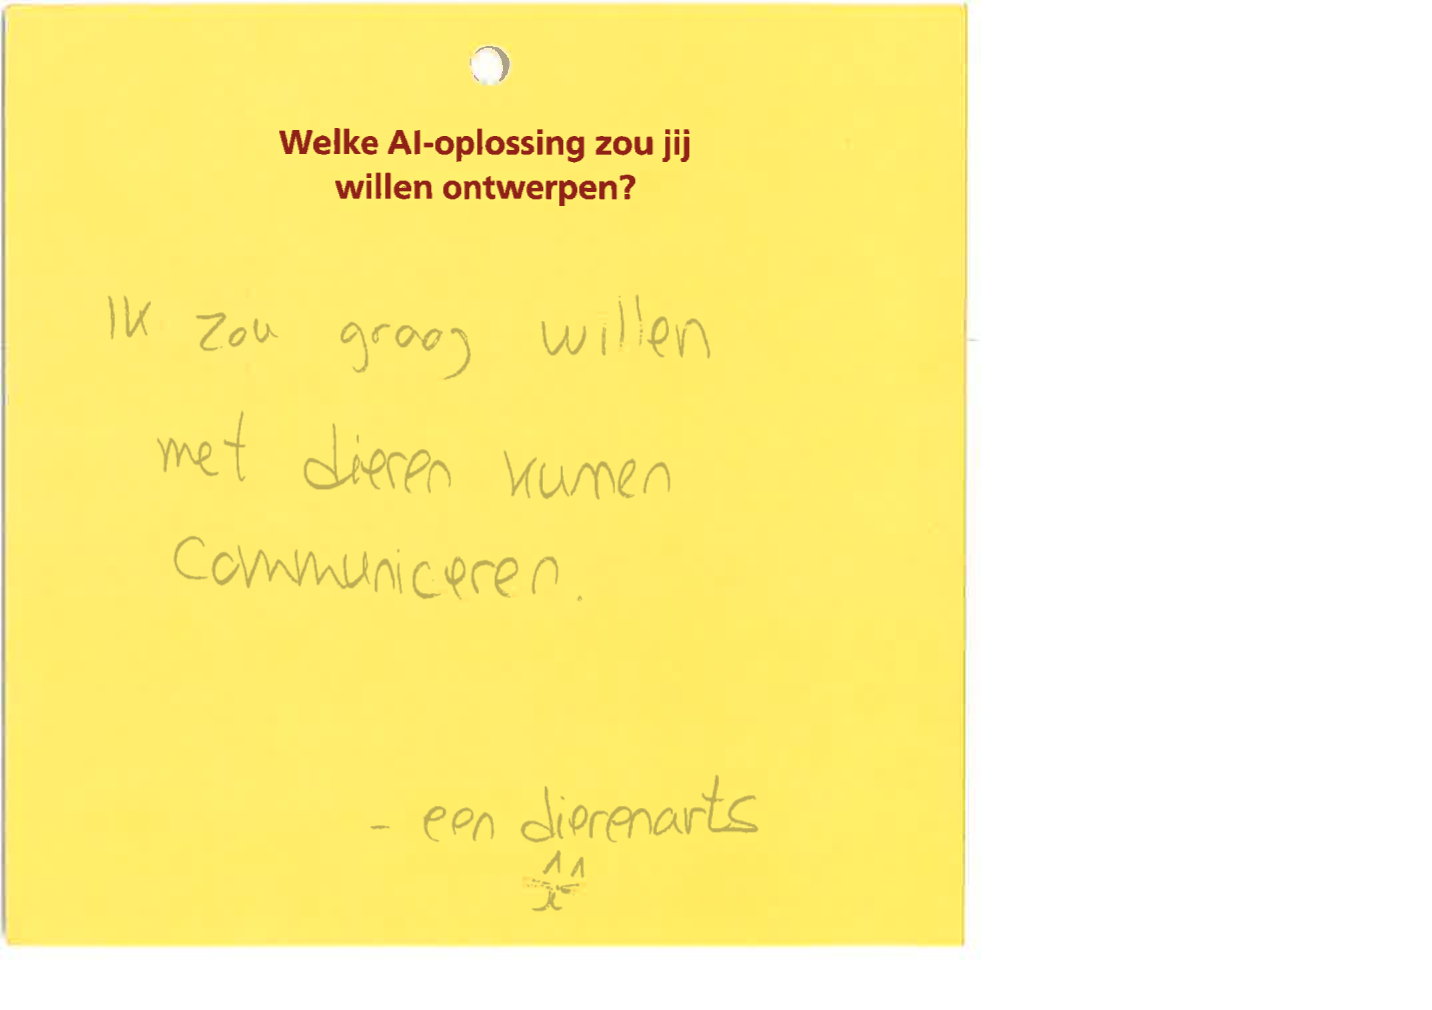 Welke AI-oplossing zou jij
willen ontwerpen?
Ik zou graag willen
met dieren kunnen
communiceren.
- een dierenarts